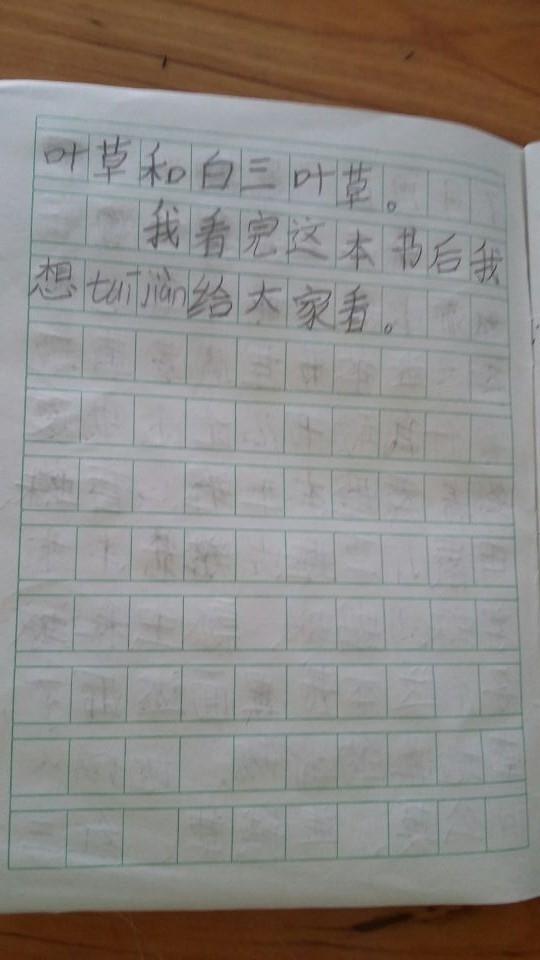 叶草和白三叶草。
我看完这本书后我
想tuījiàn给大家看。